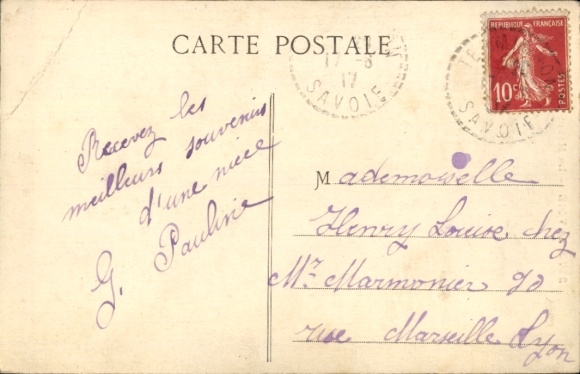 CARTE POSTALE
17-8
17
SAVOIE
REPUBLIQUE FRANÇAISE
10c
POSTES
SAVOIE
Recevez les
meilleurs souvenirs
d'une niece
G. Pauline
Mademoiselle
Henry Louise chez
Mr Marmonier 90
rue Marseille Lyon